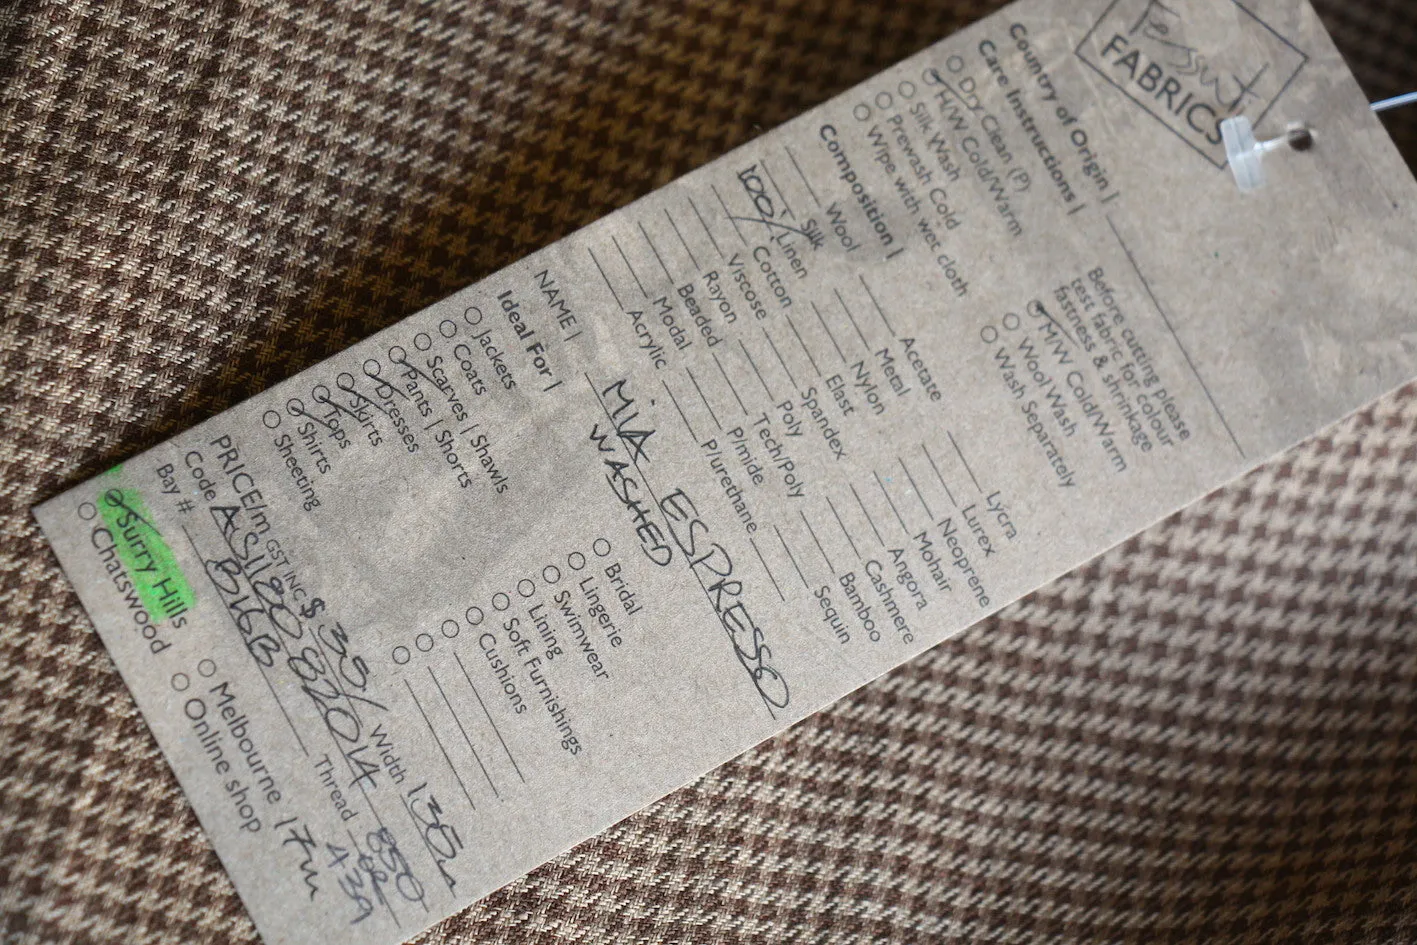 Tessuti
FABRICS
Country of Origin |
Care Instructions |
Dry Clean (P)
H/W Cold/Warm
Silk Wash
Prewash Cold
Wipe with wet cloth
Before cutting please
test fabric for colour
fastness & shrinkage
M/W Cold/Warm
Wool Wash
Wash Separately
Composition |
Wool Acetate Lycra
Silk Metal Lurex
100% Linen Nylon Neoprene
Cotton Elast Mohair
Viscose Spandex Angora
Rayon Poly Cashmere
Beaded Tech/Poly Bamboo
Modal P/mide Sequin
Acrylic P/urethane
NAME | MIA ESPRESSO
WASHED
Ideal For |
Jackets Bridal
Coats Lingerie
Scarves | Shawls Swimwear
Pants | Shorts Lining
Dresses Soft Furnishings
Skirts Cushions
Tops
Shirts
Sheeting
PRICE/m GST INC $ 35/ Width 135
Code AS1180 82014 Thread 850
Bay # B16B A39
Surry Hills Melbourne 17m
Chatswood Online shop